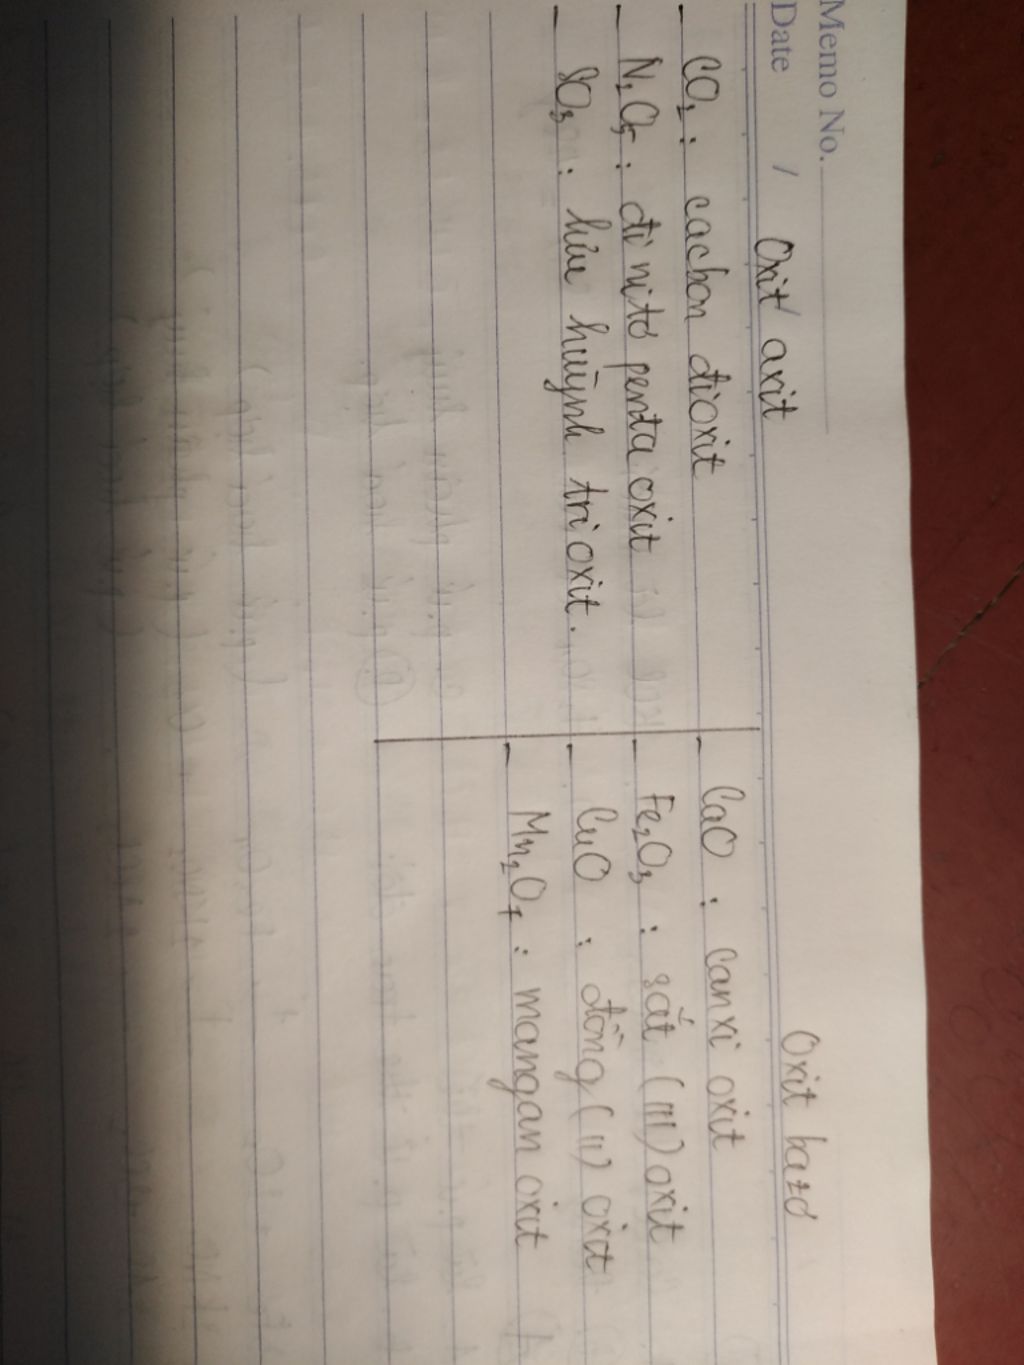 Memo No.
Date /
Oxit axit
Oxit bazơ
- CO2 : cacbon đioxit
- N2O5 : đi nitơ penta oxit
- SO3 : lưu huỳnh tri oxit.
- CaO : canxi oxit
- Fe2O3 : sắt (III) oxit
- CuO : đồng (II) oxit
- Mn2O7 : mangan oxit